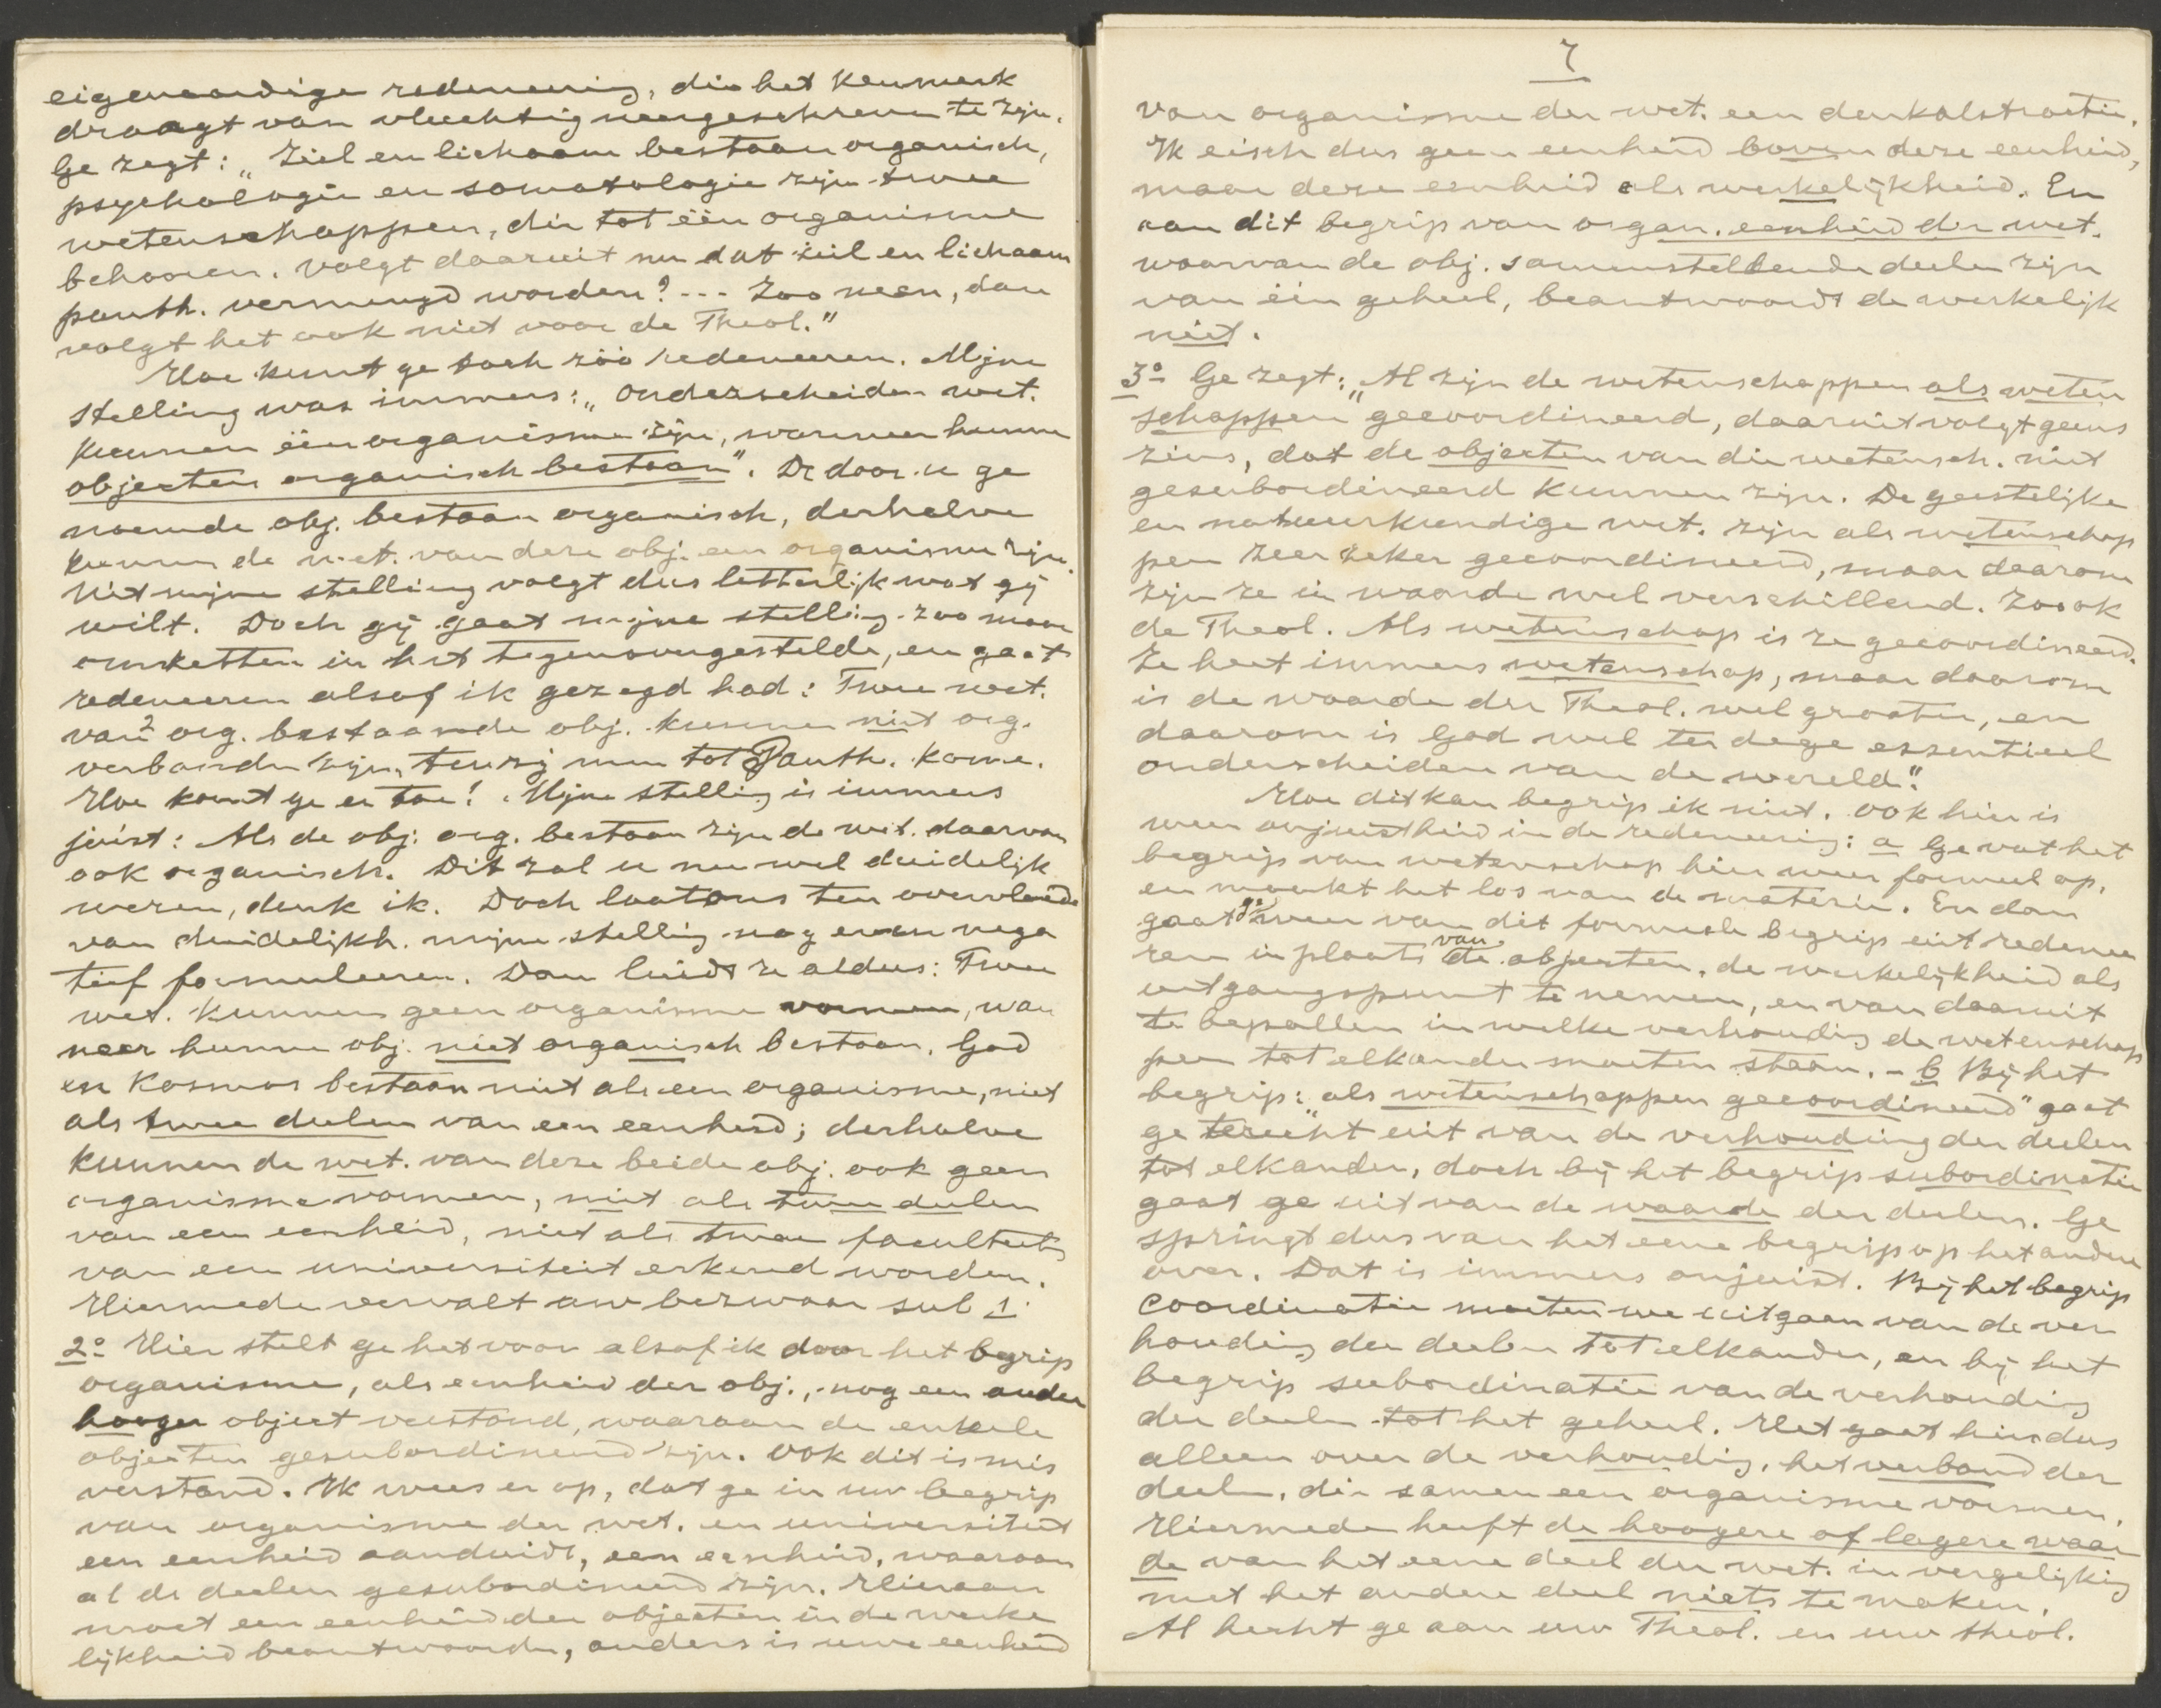 eigenaardige redeneering, die het kenmerk
draagt van vluchtig neergeschreven te zijn.
Ge zegt: „Ziel en lichaam bestaan organisch,
psychologie en somatologie zijn twee
wetenschappen, die tot één organisme
behooren. Volgt daaruit nu dat ziel en lichaam
panth. vermengd worden? --- Zoo neen, dan
volgt het ook niet voor de Theol."
Hoe kunt ge toch zóó redeneeren. Mijne
stelling was immers: „Onderscheiden wet.
kunnen één organisme zijn, wanneer hunne
objecten organisch bestaan". De door u ge
noemde obj. bestaan organisch, derhalve
kunnen de wet. van deze obj. een organisme zijn.
Uit mijne stelling volgt dus letterlijk wat gij
wilt. Doch gij gaat mijne stelling zoo maar
omzetten in het tegenovergestelde, en gaat
redeneeren alsof ik gezegd had: Twee wet.
van 2 org. bestaande obj. kunnen niet org.
verbonden zijn, tenzij men tot Panth. kome.
Hoe komt ge er toe! Mijne stelling is immers
juist: Als de obj. org. bestaan zijn de wet. daarvan
ook organisch. Dit zal u nu wel duidelijk
wezen, denk ik. Doch laat ons ten overvloede
van duidelijkh. mijne stelling nog even nega
tief formuleeren. Dan luidt ze aldus: Twee
wet. kunnen geen organisme vormen, wan
neer hunne obj. niet organisch bestaan. God
en Kosmos bestaan niet als een organisme, niet
als twee deelen van een eenheid; derhalve
kunnen de wet. van deze beide obj. ook geen
organisme vormen, niet als twee deelen
van een eenheid, niet als twee faculteiten
van een universiteit erkend worden.
Hiermede vervalt uw bezwaar sub 1.
2º Hier stelt ge het voor alsof ik door het begrip
organisme, als eenheid der obj., nog een ander
hooger object verstond, waaraan de enkele
objecten gesubordineerd zijn. Ook dit is mis
verstand. Ik wees er op, dat ge in uw begrip
van organisme der wet. en universiteit
een eenheid aanduidt, een eenheid, waaraan
al de deelen gesubordineerd zijn. Hieraan
moet een eenheid der objecten in de werke
lijkheid beantwoorden, anders is uwe eenheid
7
van organisme der wet. een denkabstractie.
Ik eisch dus geen eenheid boven deze eenheid,
maar deze eenheid als werkelijkheid. En
aan dit begrip van organ. eenheid der wet.
waarvan de obj. samenstellende deelen zijn
van één geheel, beantwoordt de werkelijk
niet.
3º Ge zegt: „Al zijn de wetenschappen als weten
schappen gecoordineerd, daaruit volgt geens
zins, dat de objecten van die wetensch. niet
gesubordineerd kunnen zijn. De geestelijke
en natuurkundige wet. zijn als wetenschap
pen zeer zeker gecoordineerd, maar daarom
zijn ze in waarde wel verschillend. Zoo ook
de Theol. Als wetenschap is ze gecoordineerd.
Ze heet immers wetenschap, maar daarom
is de waarde der Theol. wel grooter, en
daarom is God wel ter dege essentieel
onderscheiden van de wereld."
Hoe dit kan begrijp ik niet. Ook hier is
weer onjuistheid in de redeneering: a Ge vat het
begrip van wetenschap hier weer formeel op,
en maakt het los van de materie. En dan
gaat ge weer van dit formeele begrip uit redenee
ren in plaats van de objecten, de werkelijkheid als
uitgangspunt te nemen, en van daaruit
te bepalen in welke verhouding de wetenschap
pen tot elkander moeten staan. - b Bij het
begrip: „als wetenschappen gecoordineerd" gaat
ge terecht uit van de verhouding der deelen
tot elkander, doch bij het begrip subordinatie
gaat ge uit van de waarde der deelen. Ge
springt dus van het eene begrip op het andere
over. Dat is immers onjuist. Bij het begrip
coordinatie moeten we uitgaan van de ver
houding der deelen tot elkander, en bij het
begrip subordinatie van de verhouding
der deelen tot het geheel. Het gaat hier dus
alleen over de verhouding, het verband der
deelen, die samen een organisme vormen.
Hiermede heeft de hoogere of lagere waar
de van het eene deel der wet. in vergelijking
met het andere deel niets te maken.
Al hecht ge aan uw Theol. en uw theol.